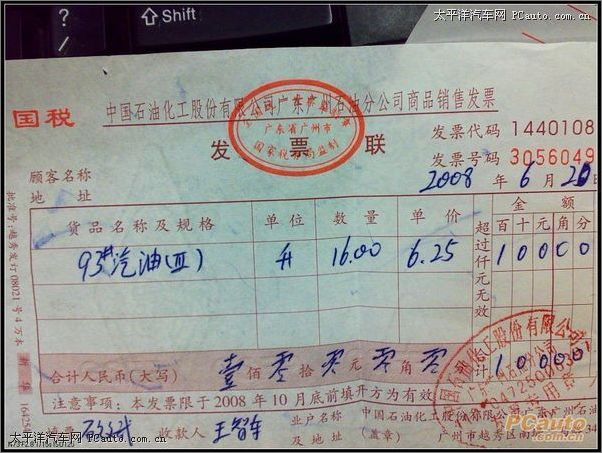 Shift
太平洋汽车网 PCauto.com.cn
国税
中国石油化工股份有限公司广东广州石油分公司商品销售发票
广东省广州市
国家税务局监制
发票联
发票代码 1440108
发票号码 3056049
顾客名称
地址
2008 年 6 月 20
货品名称及规格 单位 数量 单价 金额
超过仟元无效 百十元角分
93#汽油(Ⅲ) 升 16.00 6.25 10000
合计人民币(大写) 壹佰零拾零元零角零 计 10000
注意事项:本发票限于2008年10月底前填开方为有效
收款人 王智车 业户名称及地址 (盖章) 中国石油化工股份有限公司广东广州石油
广州市越秀区
批准号:越秀发订08021号4万本
太平洋汽车网 PCauto.com.cn
PCauto
.com.cn